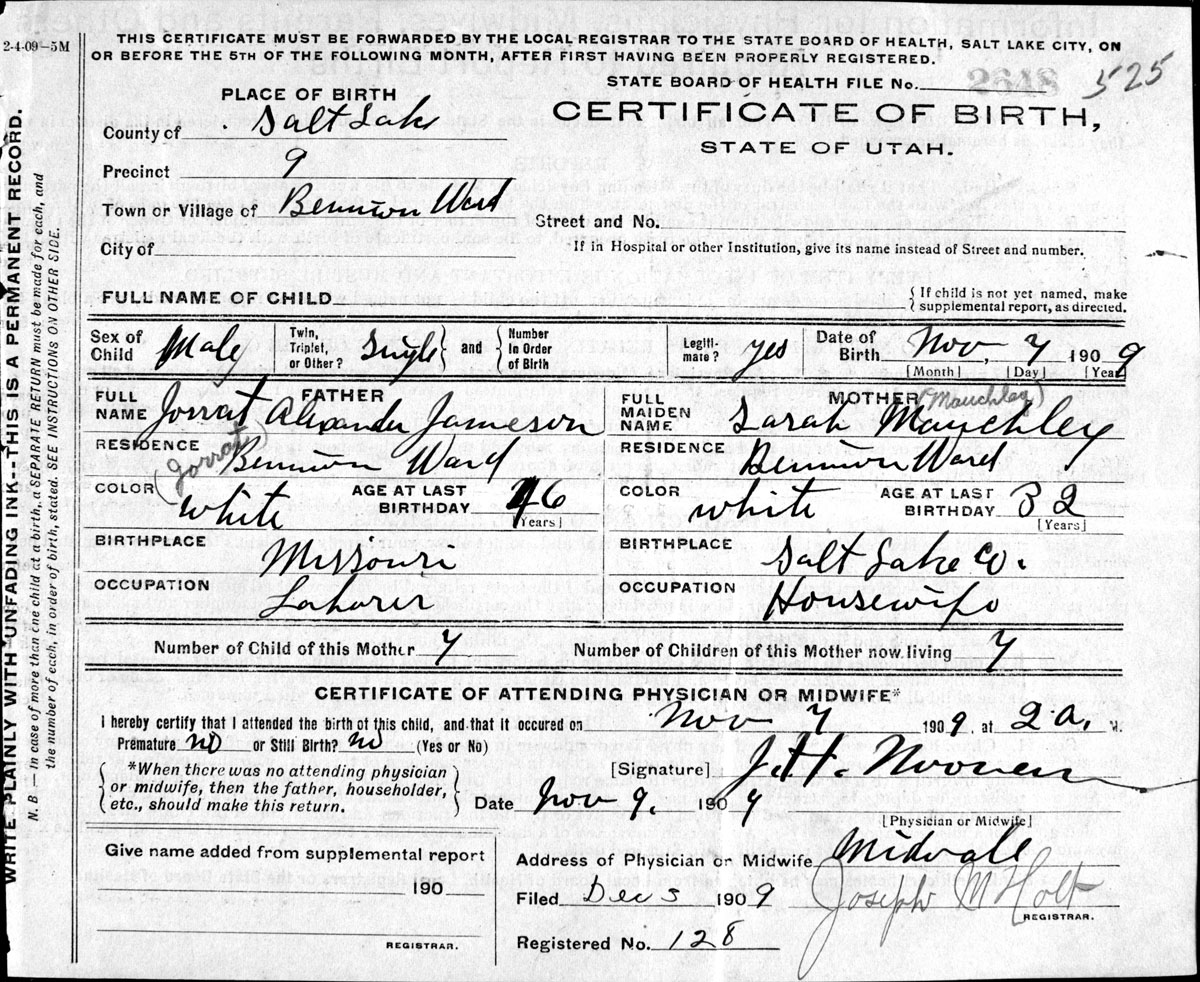 2-4-09-5M
THIS CERTIFICATE MUST BE FORWARDED BY THE LOCAL REGISTRAR TO THE STATE BOARD OF HEALTH, SALT LAKE CITY, ON
OR BEFORE THE 5TH OF THE FOLLOWING MONTH, AFTER FIRST HAVING BEEN PROPERLY REGISTERED.
STATE BOARD OF HEALTH FILE No. 2648 525
PLACE OF BIRTH
CERTIFICATE OF BIRTH,
STATE OF UTAH.
County of Salt Lake
Precinct 9
Town or Village of Bennion Ward
Street and No.
City of
If in Hospital or other Institution, give its name instead of Street and number.
FULL NAME OF CHILD
{If child is not yet named, make
supplemental report, as directed.
Sex of Child Male
Twin, Triplet, or Other? Single } and { Number In Order of Birth
Legiti-mate? yes
Date of Birth Nov, 7 1909
[Month] [Day] [Year]
FATHER
FULL NAME Jorrat Alexander Jameson
(Jorrat)
MOTHER (Mauchley)
FULL MAIDEN NAME Sarah Mauchley
RESIDENCE Bennion Ward
RESIDENCE Bennion Ward
COLOR white AGE AT LAST BIRTHDAY 46 [Years]
COLOR white AGE AT LAST BIRTHDAY 32 [Years]
BIRTHPLACE Missouri
BIRTHPLACE Salt Lake Co.
OCCUPATION Laborer
OCCUPATION Housewife
Number of Child of this Mother 7 Number of Children of this Mother now living 7
CERTIFICATE OF ATTENDING PHYSICIAN OR MIDWIFE*
I hereby certify that I attended the birth of this child, and that it occured on Nov 7 1909, at 2 a. M.
Premature no or Still Birth? no (Yes or No)
[Signature] J. H. Noonen
{*When there was no attending physician
or midwife, then the father, householder,
etc., should make this return.}
Date Nov 9. 1909
[Physician or Midwife]
Give name added from supplemental report
190
REGISTRAR.
Address of Physician or Midwife Midvale
Filed Dec 5 1909 Joseph M Holt
REGISTRAR.
Registered No. 128
WRITE PLAINLY WITH UNFADING INK--THIS IS A PERMANENT RECORD.
N. B.—In case of more than one child at a birth, a SEPARATE RETURN must be made for each, and
the number of each, in order of birth, stated. SEE INSTRUCTIONS ON OTHER SIDE.